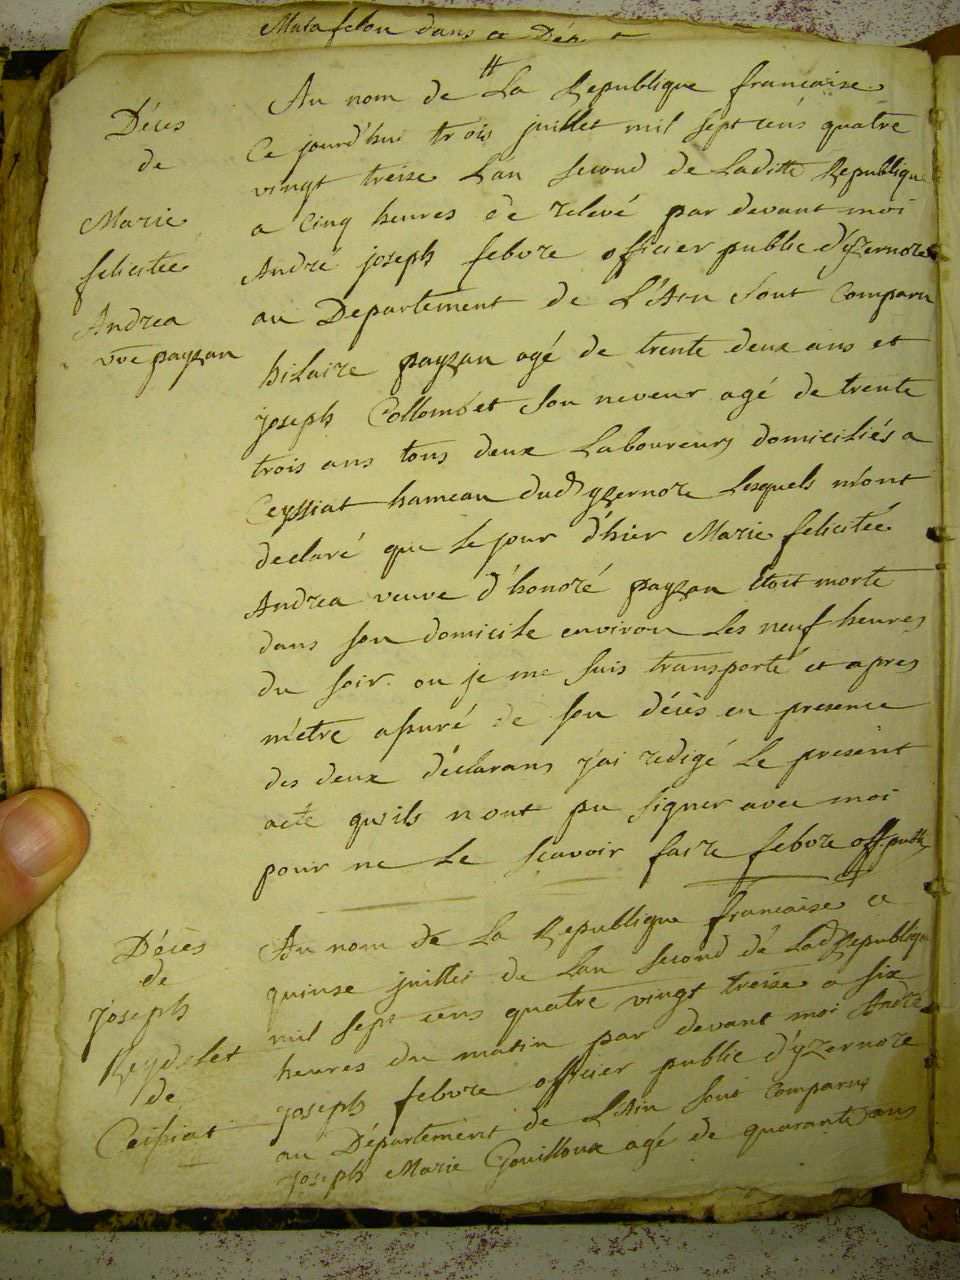 Matafelon dans ce
Décès
de
Marie
felicitée
Andrea
vve payzan
Au nom de La Republique francaise
Ce jourd'hui trois juillet mil sept cens quatre
vingt treise L'an second de Laditte Republique
a Cinq heures de relevé par devant moi
André joseph febvre officier public d'yzernore
au Departement de L'Ain Sont Comparu
hilaire payzan agé de trente deux ans et
joseph Collombet son neveur agé de trente
trois ans tous deux Laboureurs domiciliés a
Ceyssiat hameau dud yzernore Lesquels m'ont
declaré que Le jour d'hier Marie felicitée
Andrea veuve d'honoré payzan étoit morte
dans son domicile environ Les neuf heures
du soir ou je me suis transporté et apres
m'etre assuré de son décès en presence
des deux déclarans j'ai redigé Le present
acte qu'ils n'ont pu signer avec moi
pour ne Le scavoir faire febvre off publi
Décès
de
joseph
Reydelet
de
Ceissiat
Au nom de La Republique francaise ce
quinse juillet de Lan second de Lad Republique
mil sept cens quatre vingt treise a six
heures du matin par devant moi André
joseph febvre officier public d'yzernore
au Département de L'Ain sont Comparus
joseph Marie Gouilloux agé de quarante ans